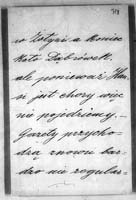 w Zołyni a koniec
koło Dąbrówek.
ale ponieważ Hen-
si jest chory więc
nie pojedziemy. -
Gazety przycho-
dzą znowu bar-
dzo nie regular-